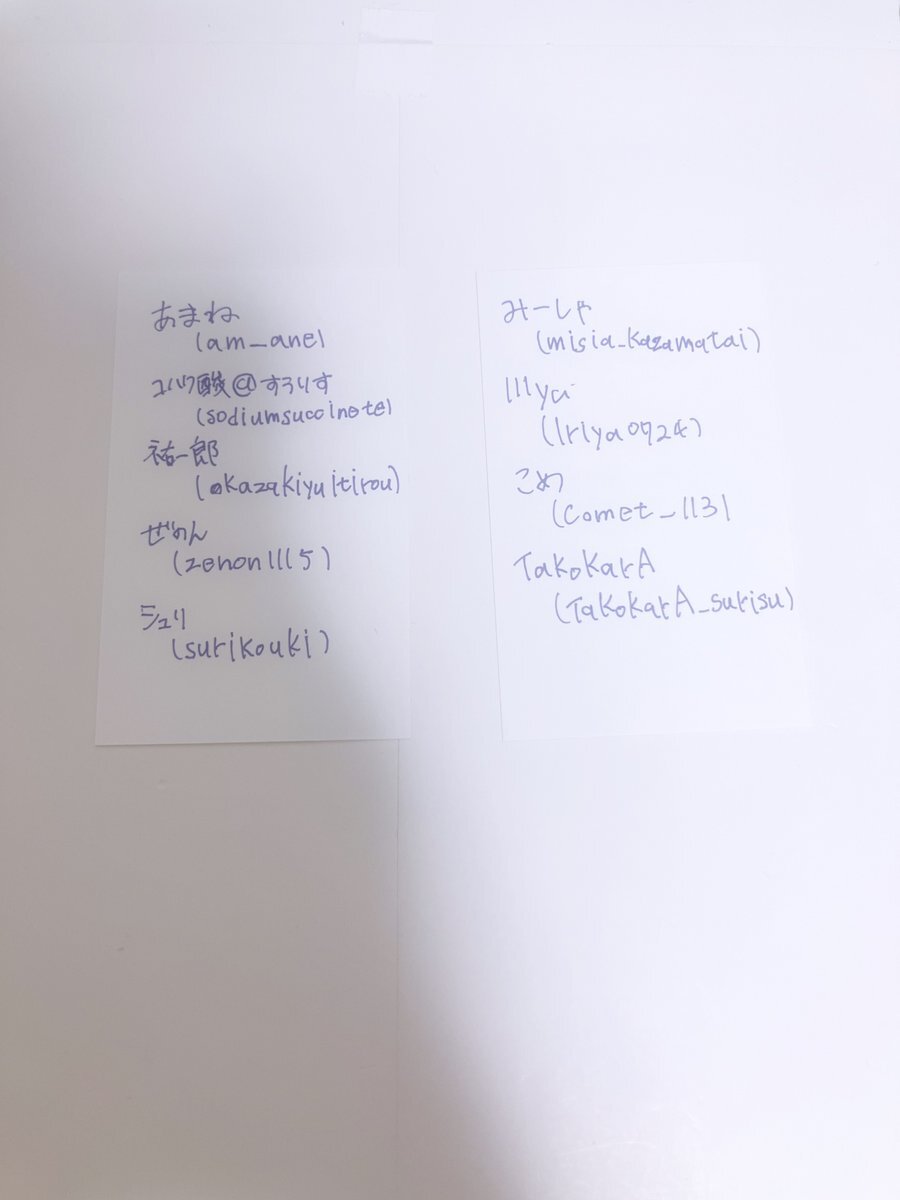 あまね
(am_ane)
コハク酸@すろりす
(sodiumsuccinate)
祐一郎
(okazakiyuitirou)
ぜのん
(zenon1115)
シュリ
(surikouki)
みーしゃ
(misia_kazamatai)
Illya
(Irlya0924)
こめっ
(comet_113)
TakokarA
(TakokarA_surisu)